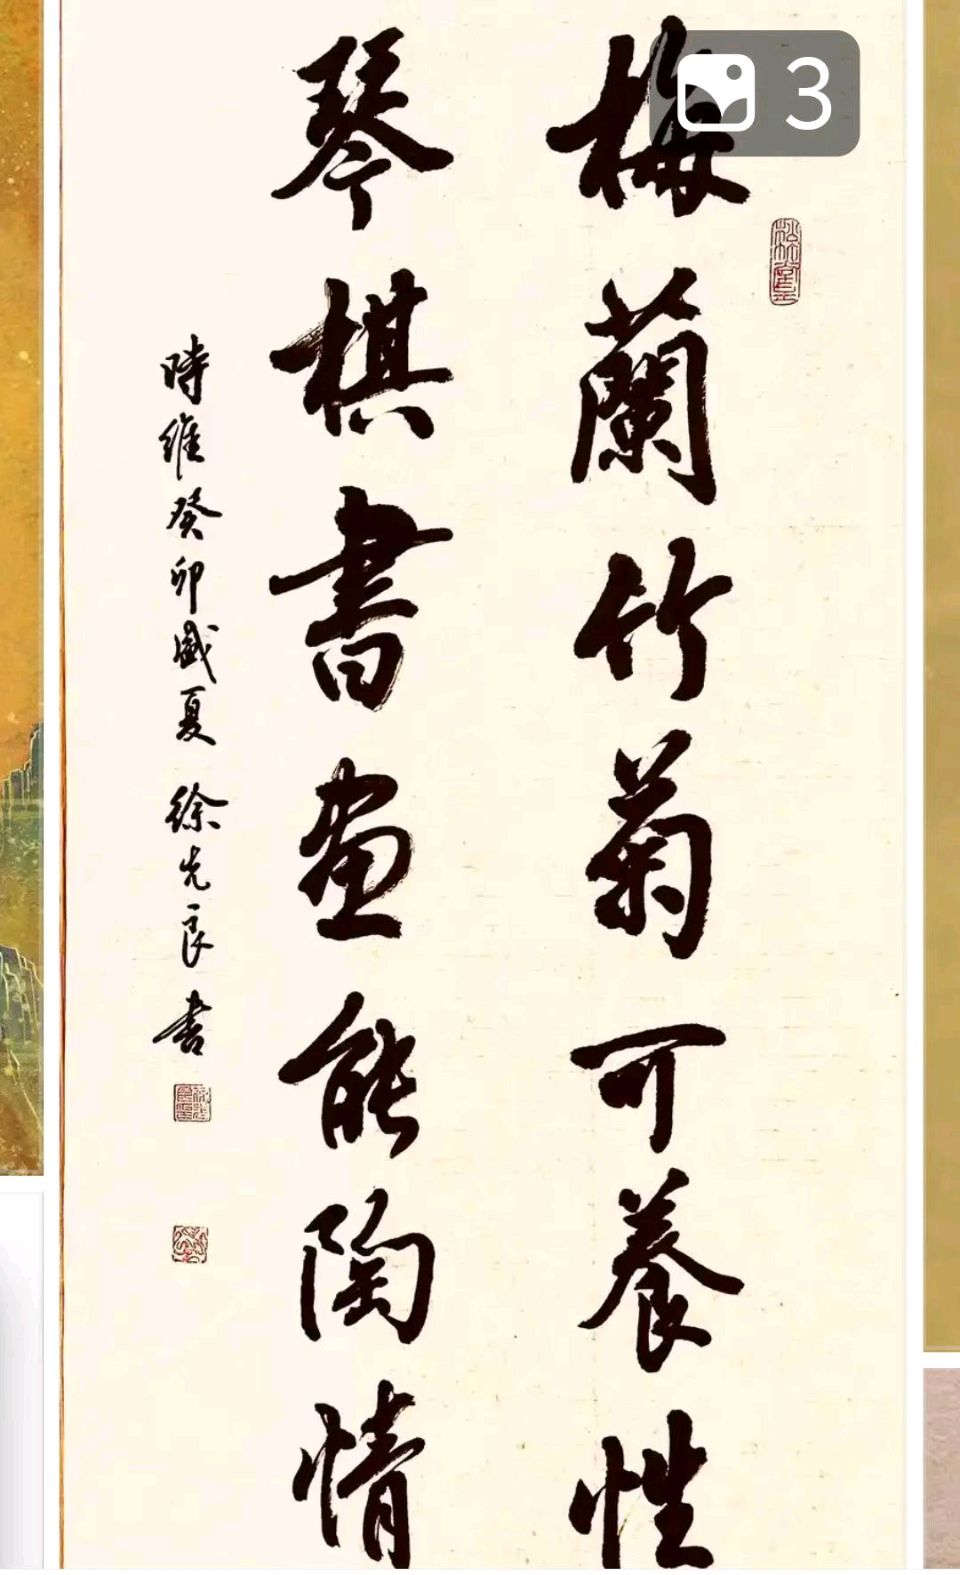 3
梅蘭竹菊可養性
琴棋書畫能陶情
時維癸卯盛夏 徐先良書